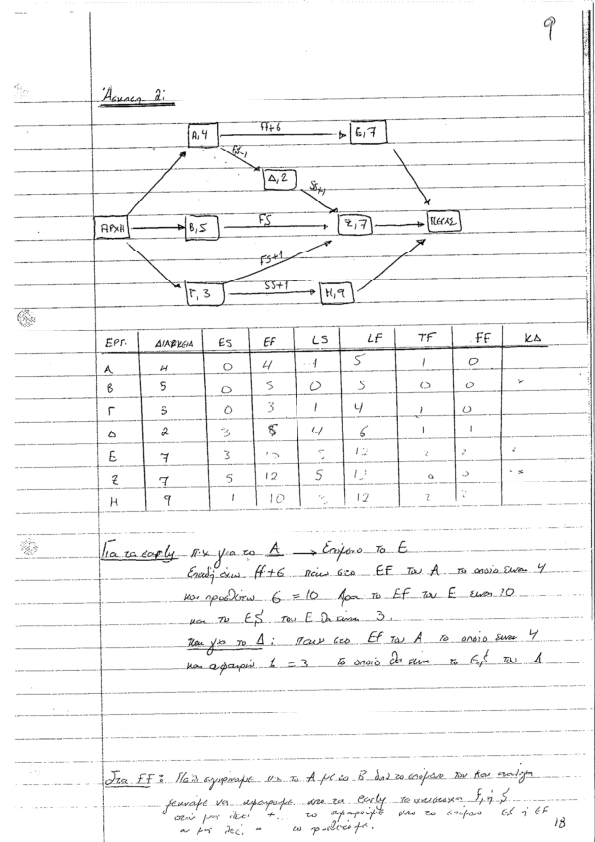 9
Άσκηση 2:
A, 4 FF+6 E, 7
FS-1
Δ, 2 SS+1
ΑΡΧΗ B, 5 FS Z, 7 ΠΕΡΑΣ
FS+1
Γ, 3 SS+1 H, 9
ΕΡΓ. ΔΙΑΡΚΕΙΑ ES EF LS LF TF FF ΚΔ
A 4 0 4 1 5 1 0
B 5 0 5 0 5 0 0
Γ 3 0 3 1 4 1 0
Δ 2 3 5 4 6 1 1
E 7 3 10 5 12 2 2
Z 7 5 12 5 12 0 0
H 9 1 10 3 12 2 2
Για τα early π.χ για το A → Επόμενο το E
Επειδή έχω FF+6 πάω στο EF του A το οποίο είναι 4
και προσθέτω 6 = 10 Άρα το EF του E είναι 10
και το ES του E θα είναι 3.
Και για το Δ: πάω στο EF του A το οποίο είναι 4
και αφαιρώ 1 = 3 το οποίο θα είναι το ES του Δ
Στα FF: Πάλι το A με το B από το επόμενο του και ανάλογα
να αφαιρούμε από τα early το F ή S
μας λέει + το αφαιρούμε από το επόμενο ES ή EF
αν μας λέει - το προσθέτουμε.
18